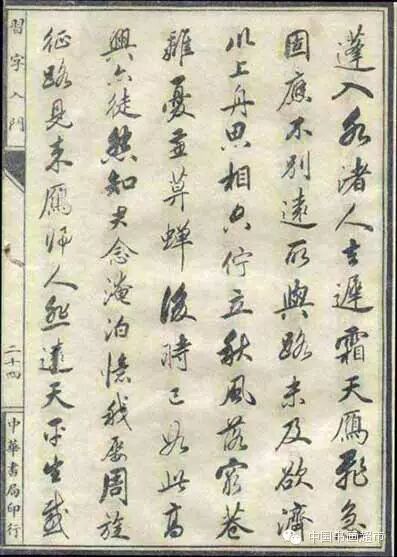 蓬入水渚人去遲霜天雁飛急
固應不別遠所與路未及欲濟
川上舟思相空佇立秋風落窮巷
離憂並暮蟬後時已如此高
興亦徒然知君念淹泊憶我屢周旋
征路見來雁歸人悲遠天平生感
習字入門
二十四
中華書局印行
中国书画超市